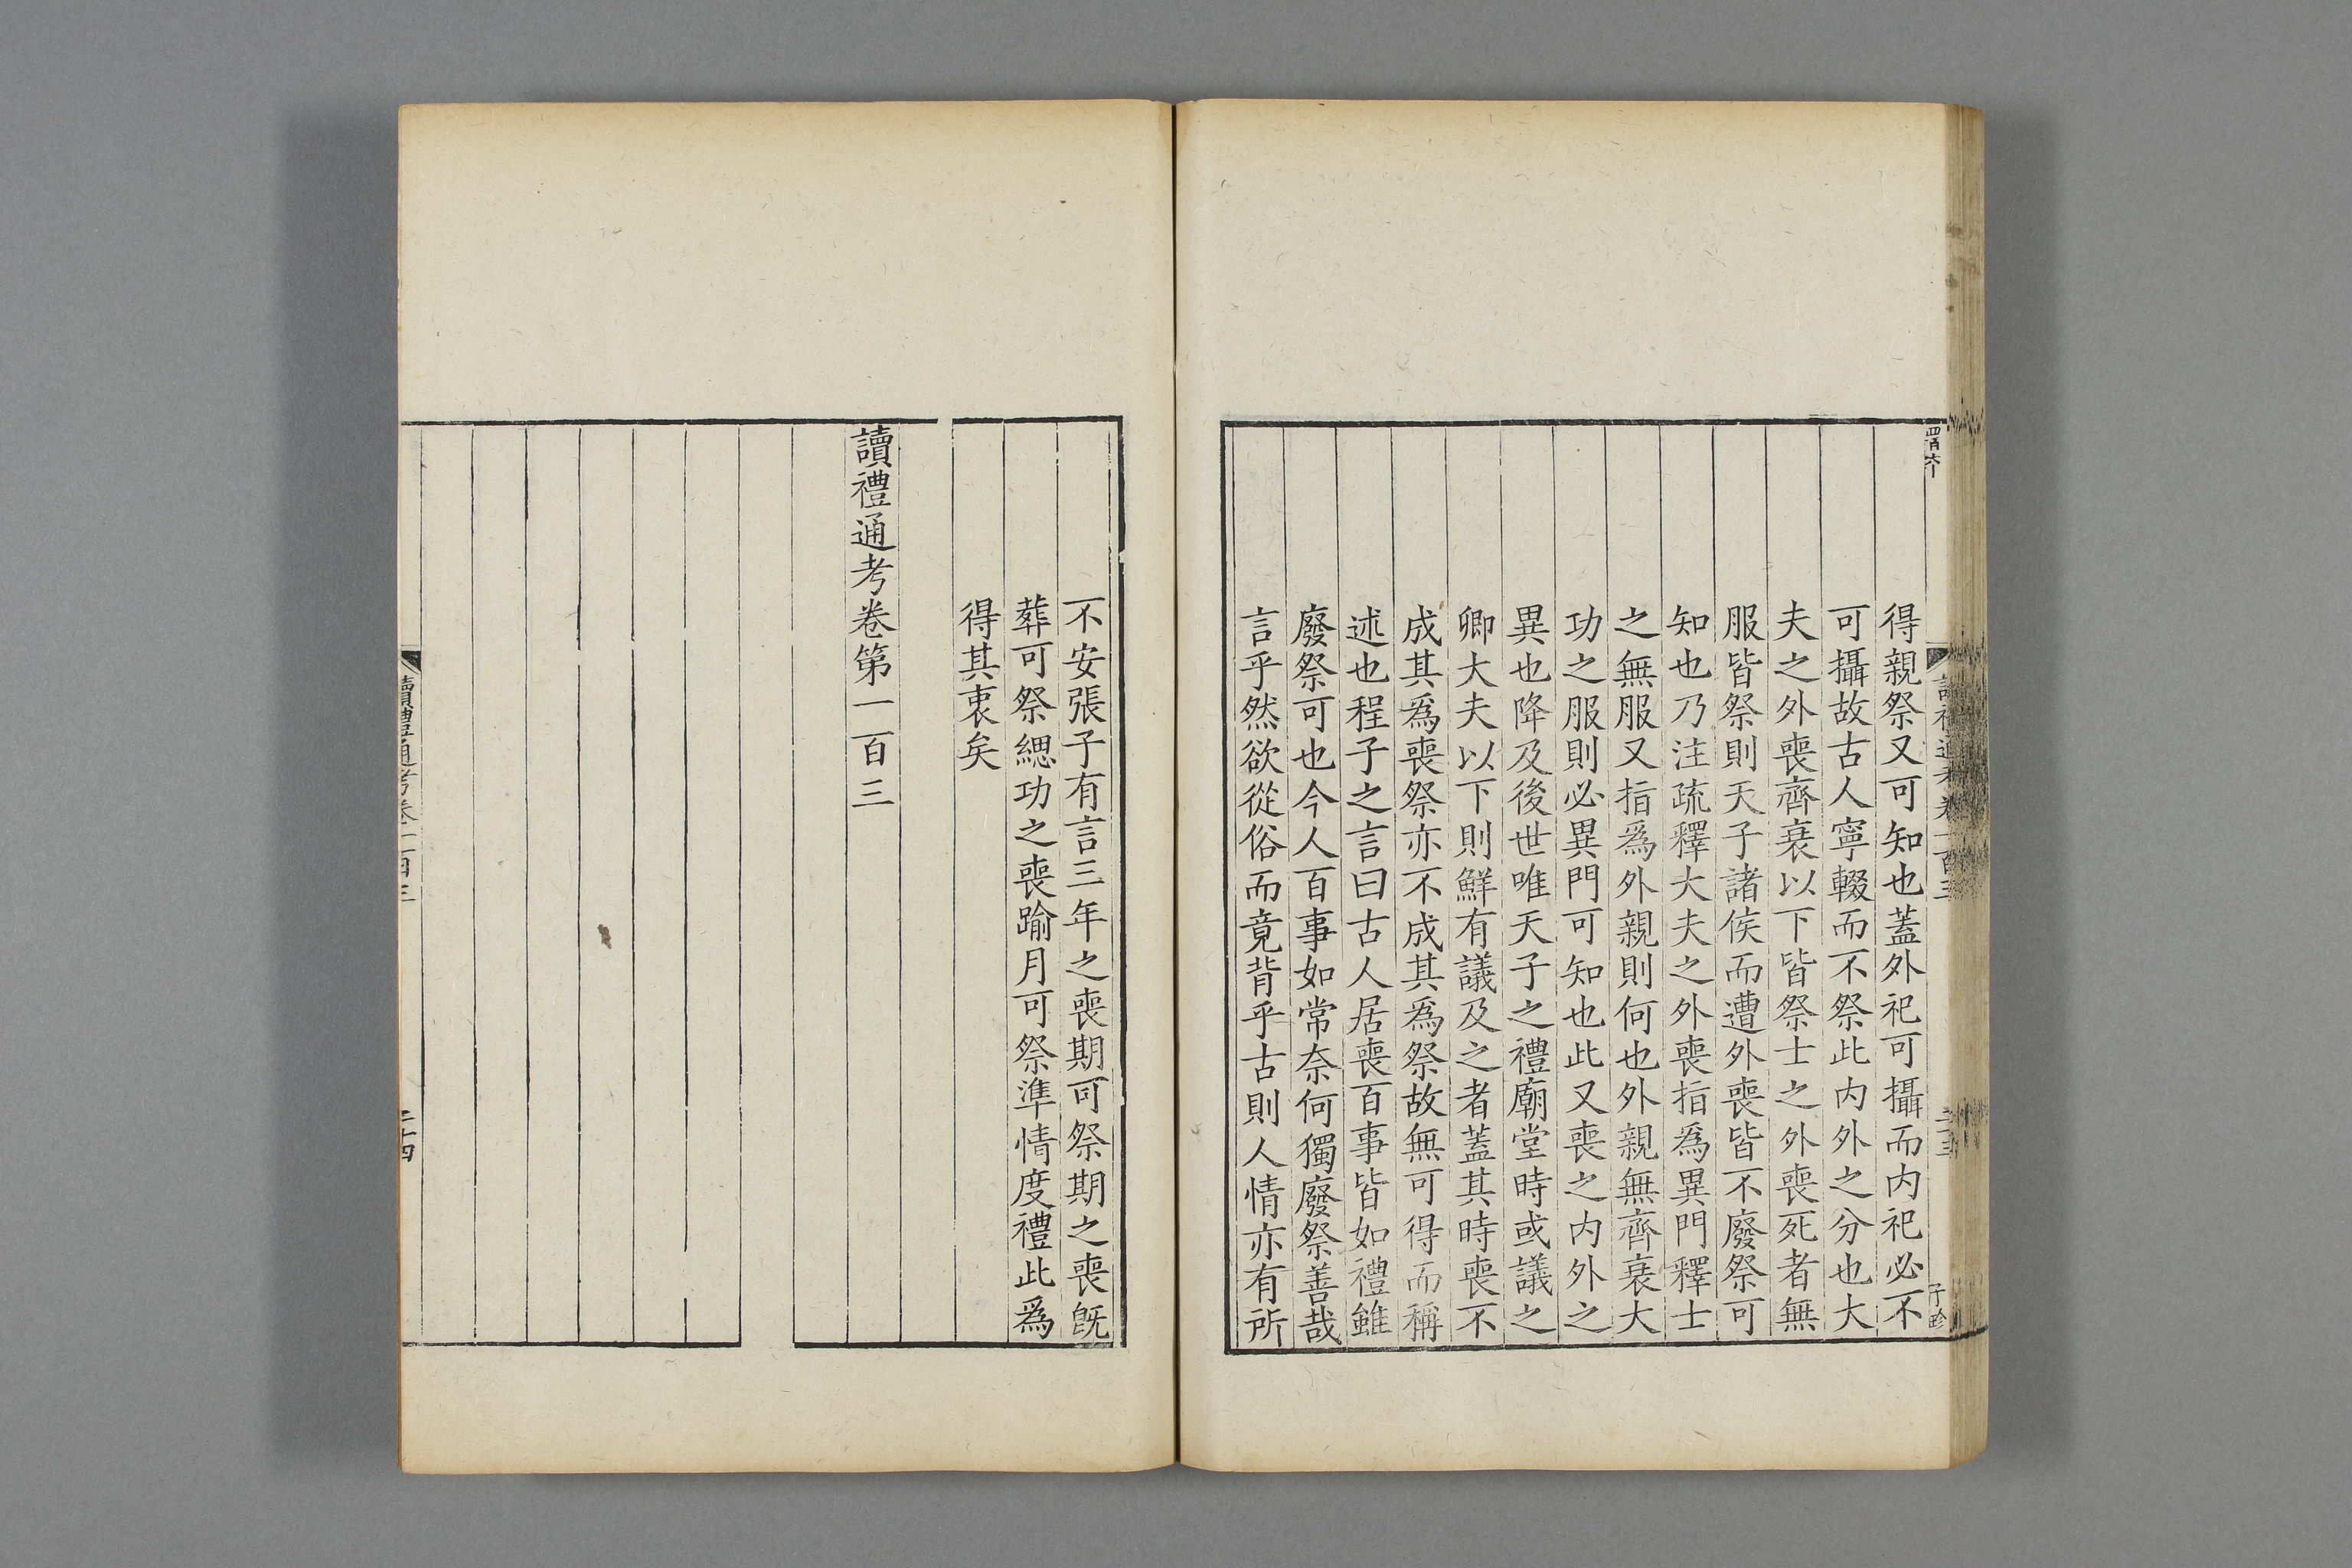 得親祭又可知也蓋外祀可攝而内祀必不
可攝故古人寧輟而不祭此内外之分也大
夫之外喪齊衰以下皆祭士之外喪死者無
服皆祭則天子諸侯而遭外喪皆不廢祭可
知也乃注疏釋大夫之外喪指爲異門釋士
之無服又指爲外親則何也外親無齊衰大
功之服則必異門可知也此又喪之内外之
異也降及後世唯天子之禮廟堂時或議之
卿大夫以下則鮮有議及之者蓋其時喪不
成其爲喪祭亦不成其爲祭故無可得而稱
述也程子之言曰古人居喪百事皆如禮雖
廢祭可也今人百事如常奈何獨廢祭善哉
言乎然欲從俗而竟背乎古則人情亦有所
不安張子有言三年之喪期可祭期之喪旣
葬可祭緦功之喪踰月可祭準情度禮此爲
得其衷矣
讀禮通考卷第一百三
讀禮通考卷一百三
二十四